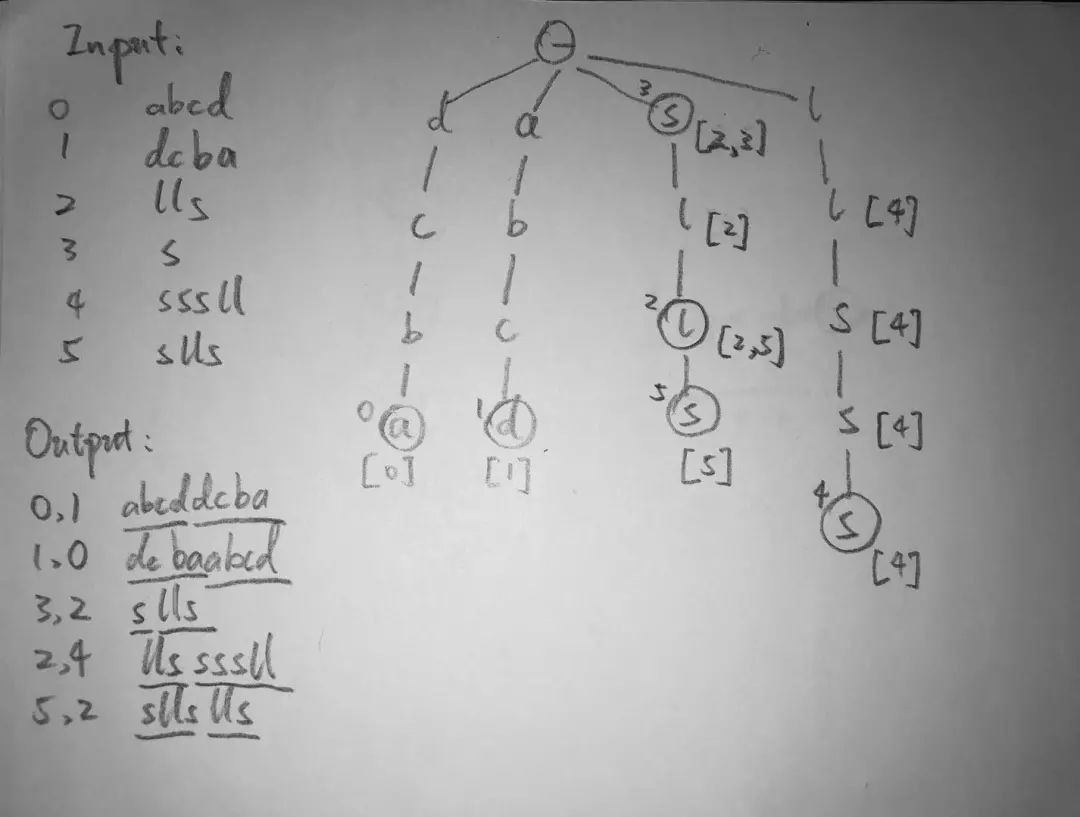 Input:
0 abcd
1 dcba
2 lls
3 s
4 sssll
5 slls
Output:
0,1 abcddcba
1,0 dcbaabcd
3,2 slls
2,4 llssssll
5,2 sllslls
d a 3 s [2,3] l
c b l [2] l [4]
b c 2 l [2,5] s [4]
0 a 1 d 5 s s [4]
[0] [1] [5]
4 s [4]